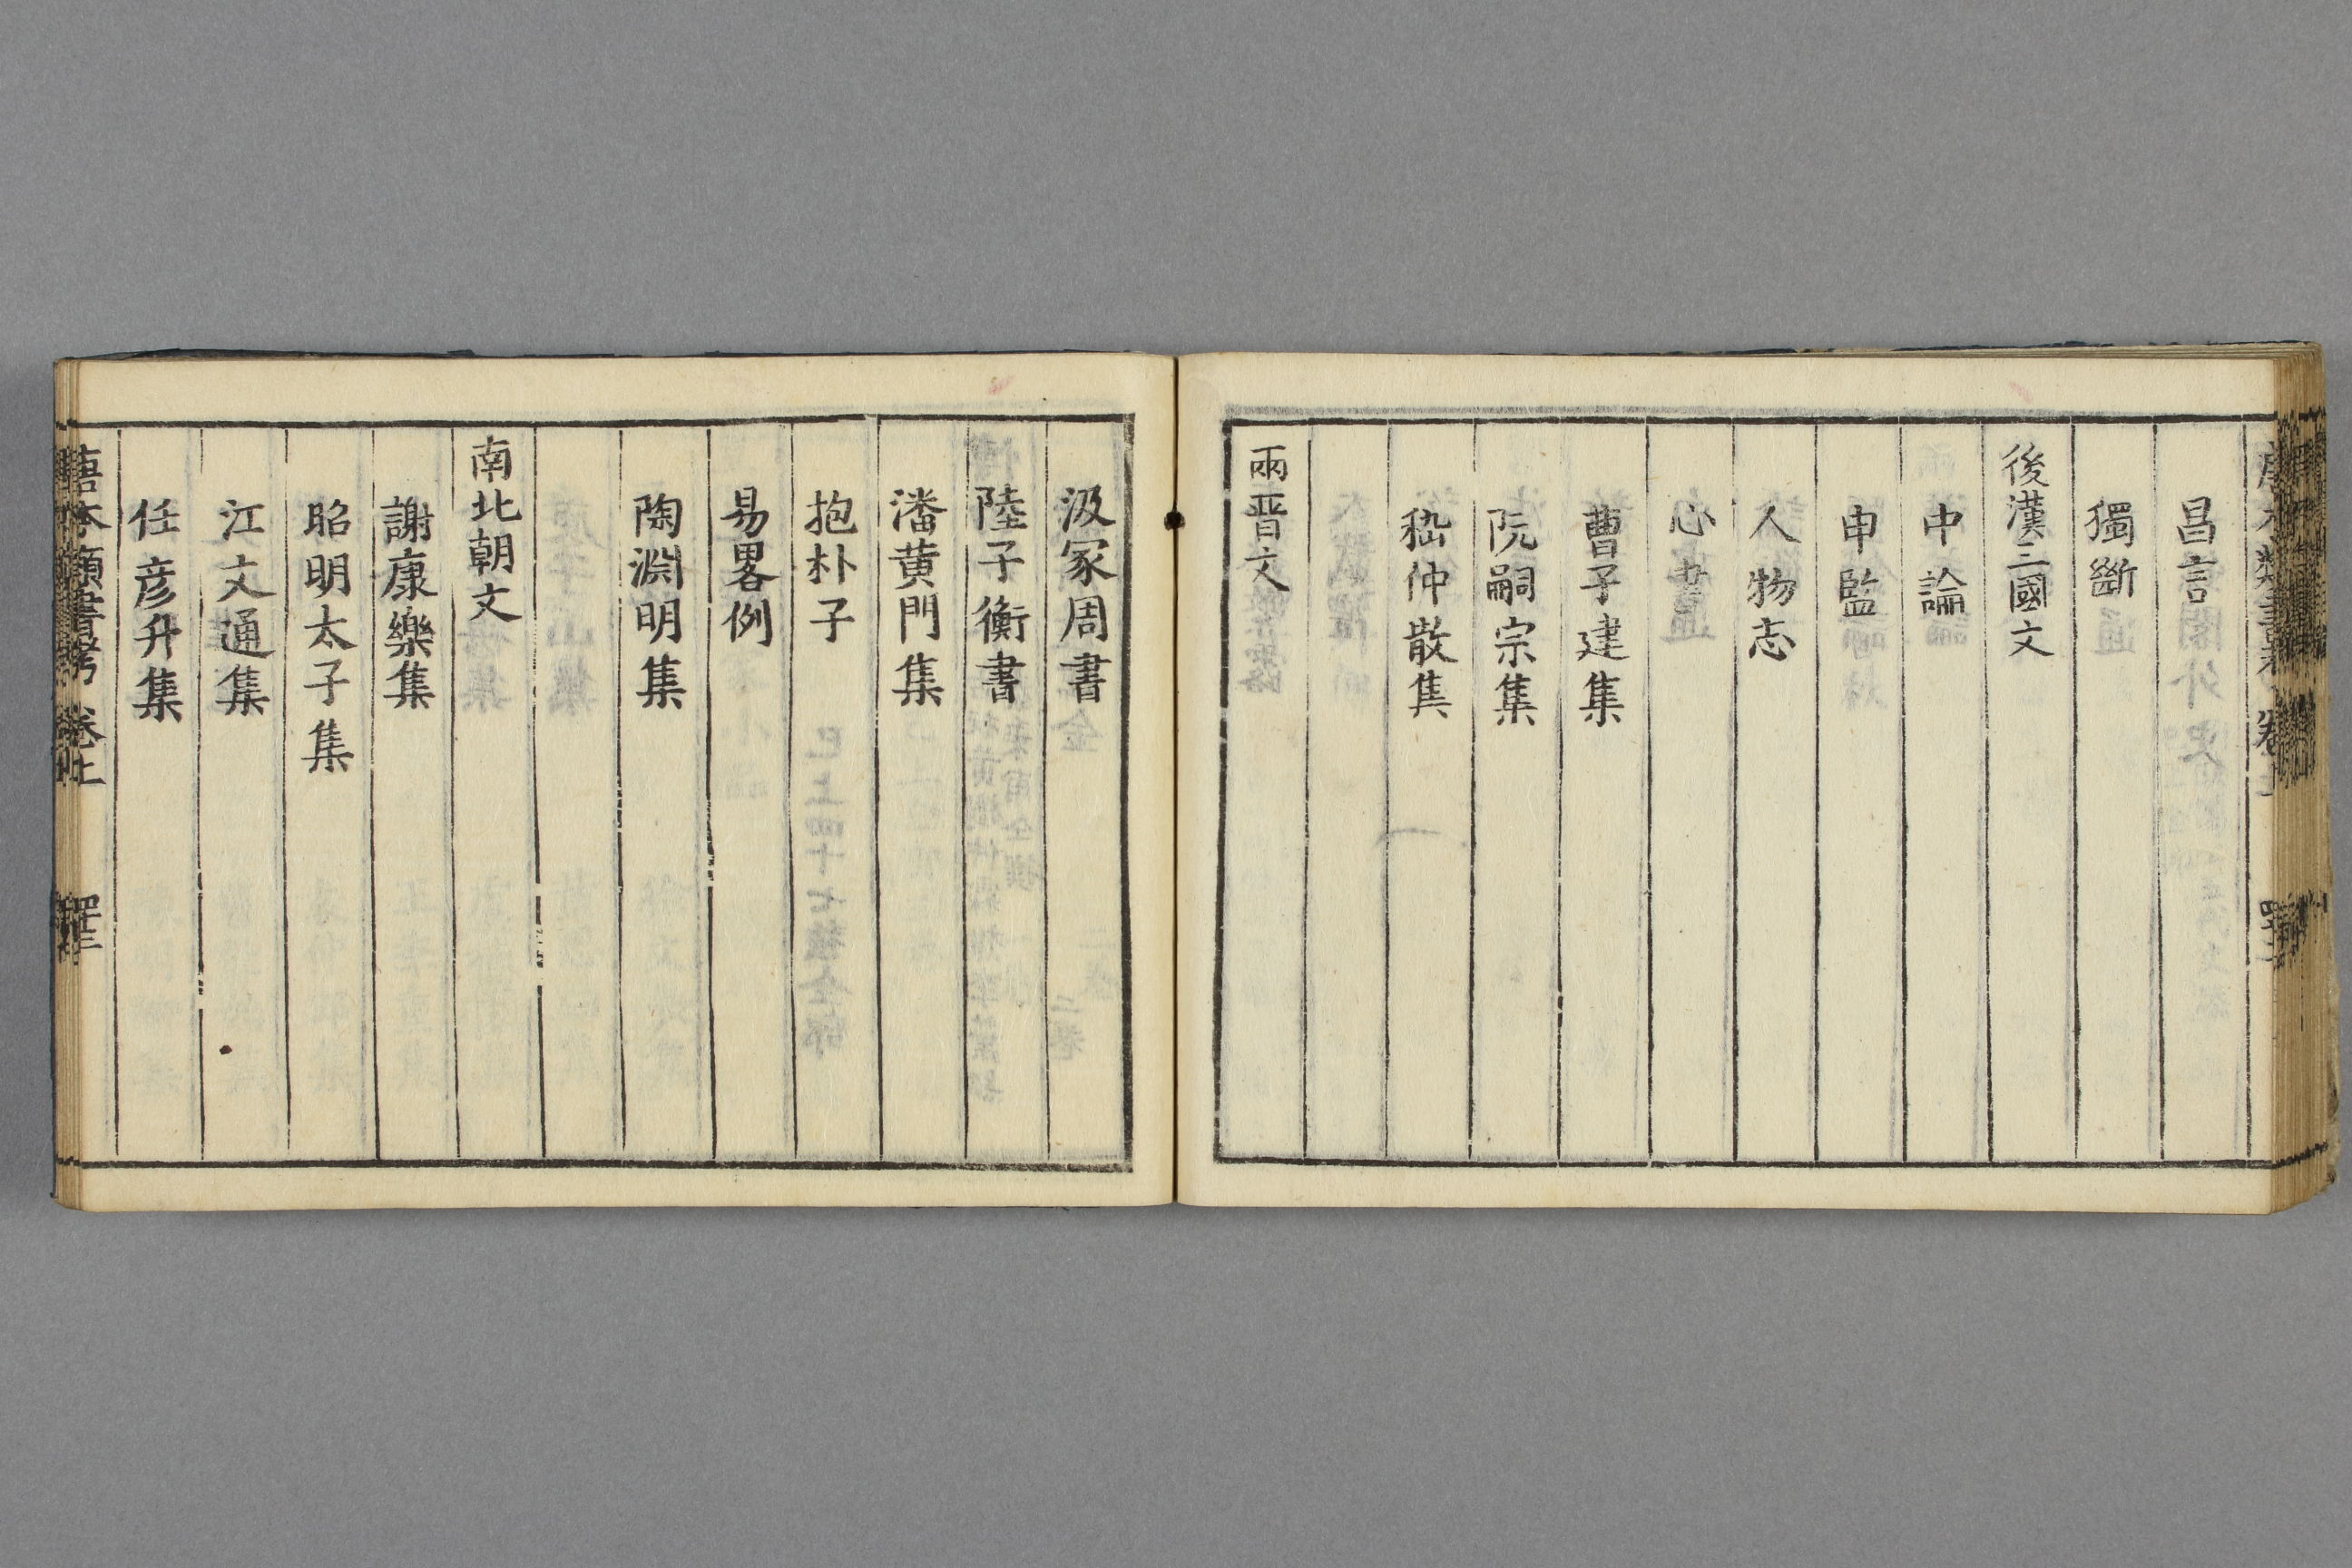 昌言
獨斷
後漢三國文
中論
申監
人物志
心書
曹子建集
阮嗣宗集
嵇仲散集
兩晋文
汲冢周書
陸子衡書
潘黄門集
抱朴子
易畧例
陶淵明集
南北朝文
謝康樂集
昭明太子集
江文通集
任彦升集
唐本類書考 卷上